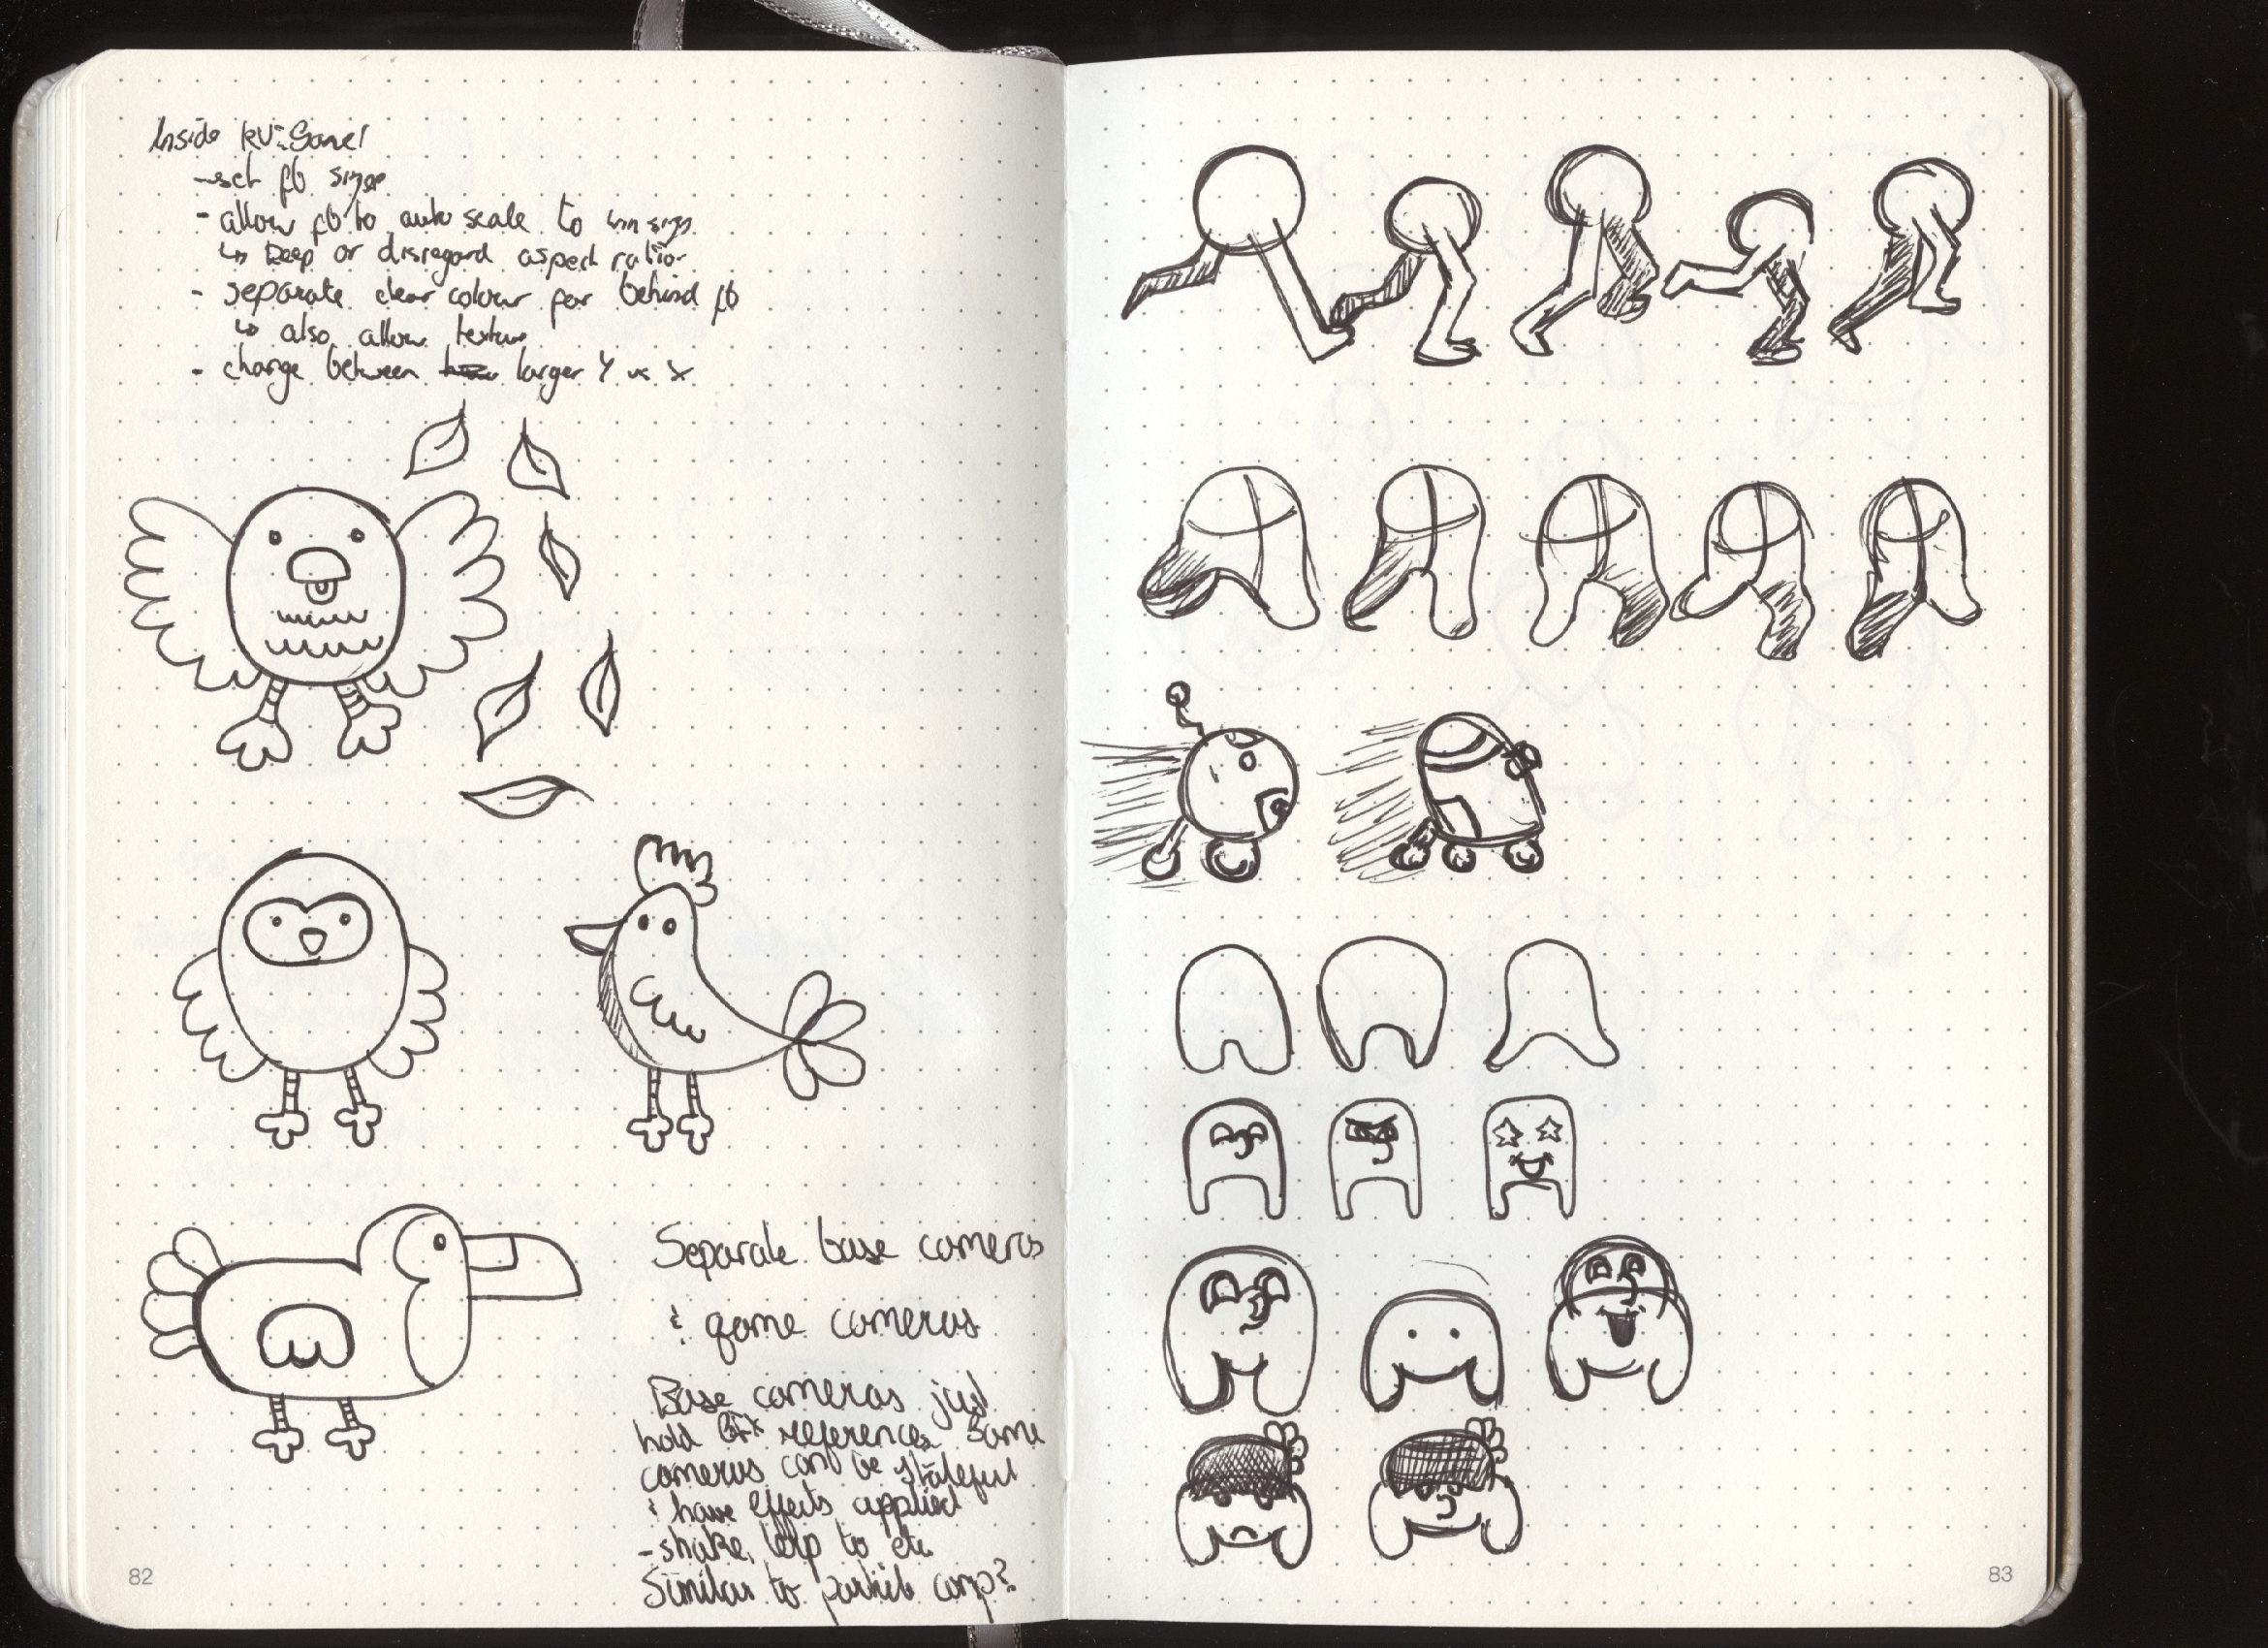 Inside
- set fb size
- allow fb to auto scale to win size
↳ keep or disregard aspect ratio
- separate clear colour for behind fb
↳ also allow texture
- change between larger Y vs X
Separate base cameras
& game cameras
Base cameras just
hold GFX references. Game
cameras can be stateful
& have effects applied
- shake, lerp to etc
Similar to particle comp?
82
83